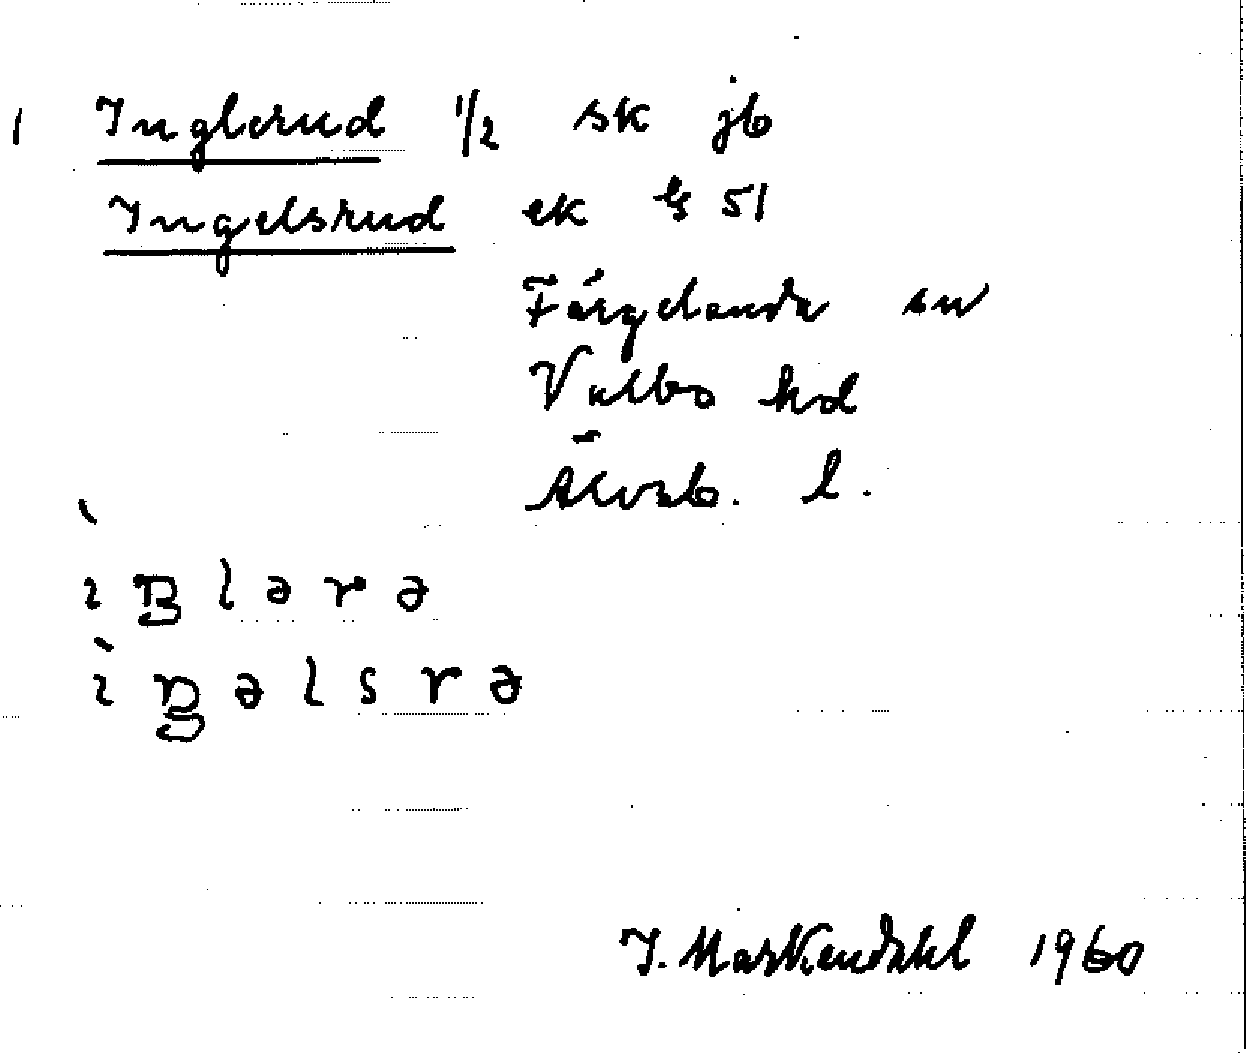 1 Inglerud 1/2 sk jb
Ingelsrud ek G 51
Färgelanda sn
Valbo hd
Älvsb. l.
ìŋlərə
ìŋəlsrə
I. Markendahl 1960